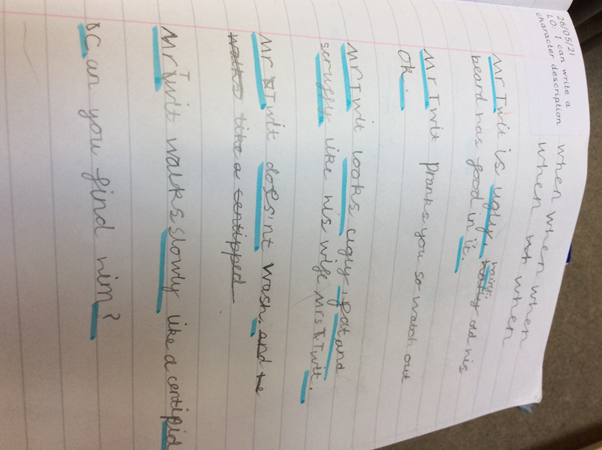 26/05/21
LO: I can write a
character description
when when when
when wh when
Mr Twit is ugly, hairy ad his
beard has food in it.
Mr Twit Pranks you so watch out
OK.
Mr Twit looks ugly, fat and
scruffy like his wife Mrs Twit.
Mr Twit does'nt wash and he
walks like a centipped
Mr Twit walks slowly like a centipid
Can you find him?